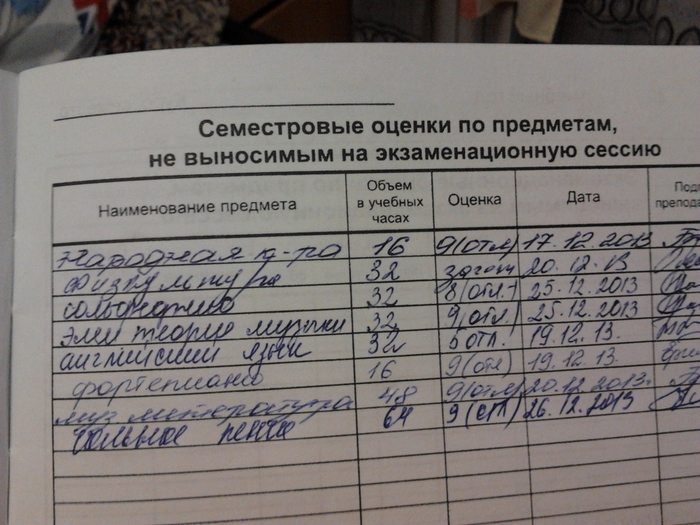 Семестровые оценки по предметам,
не выносимым на экзаменационную сессию
Наименование предмета Объем в учебных часах Оценка Дата
Народная к-ра 16 9(отл) 17.12.2013
физкультура 32 20.12.13
сольфеджио 32 8(отл.) 25.12.2013
элем теория музыки 32 9(отл.) 25.12.2013
английский язык 32 отл. 19.12.13.
фортепиано 16 9(отл) 19.12.13.
муз литература 48 9(отл) 20.12.2013.
сольное пение 64 9 26.12.2013